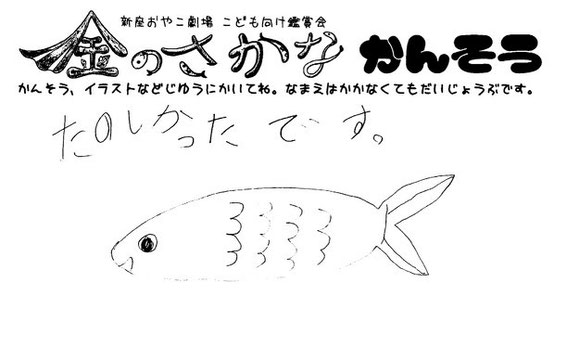 新座おやこ劇場 こども向け鑑賞会
金のさかな かんそう
かんそう、イラストなどじゆうにかいてね。なまえはかかなくてもだいじょうぶです。
たのしかったです。